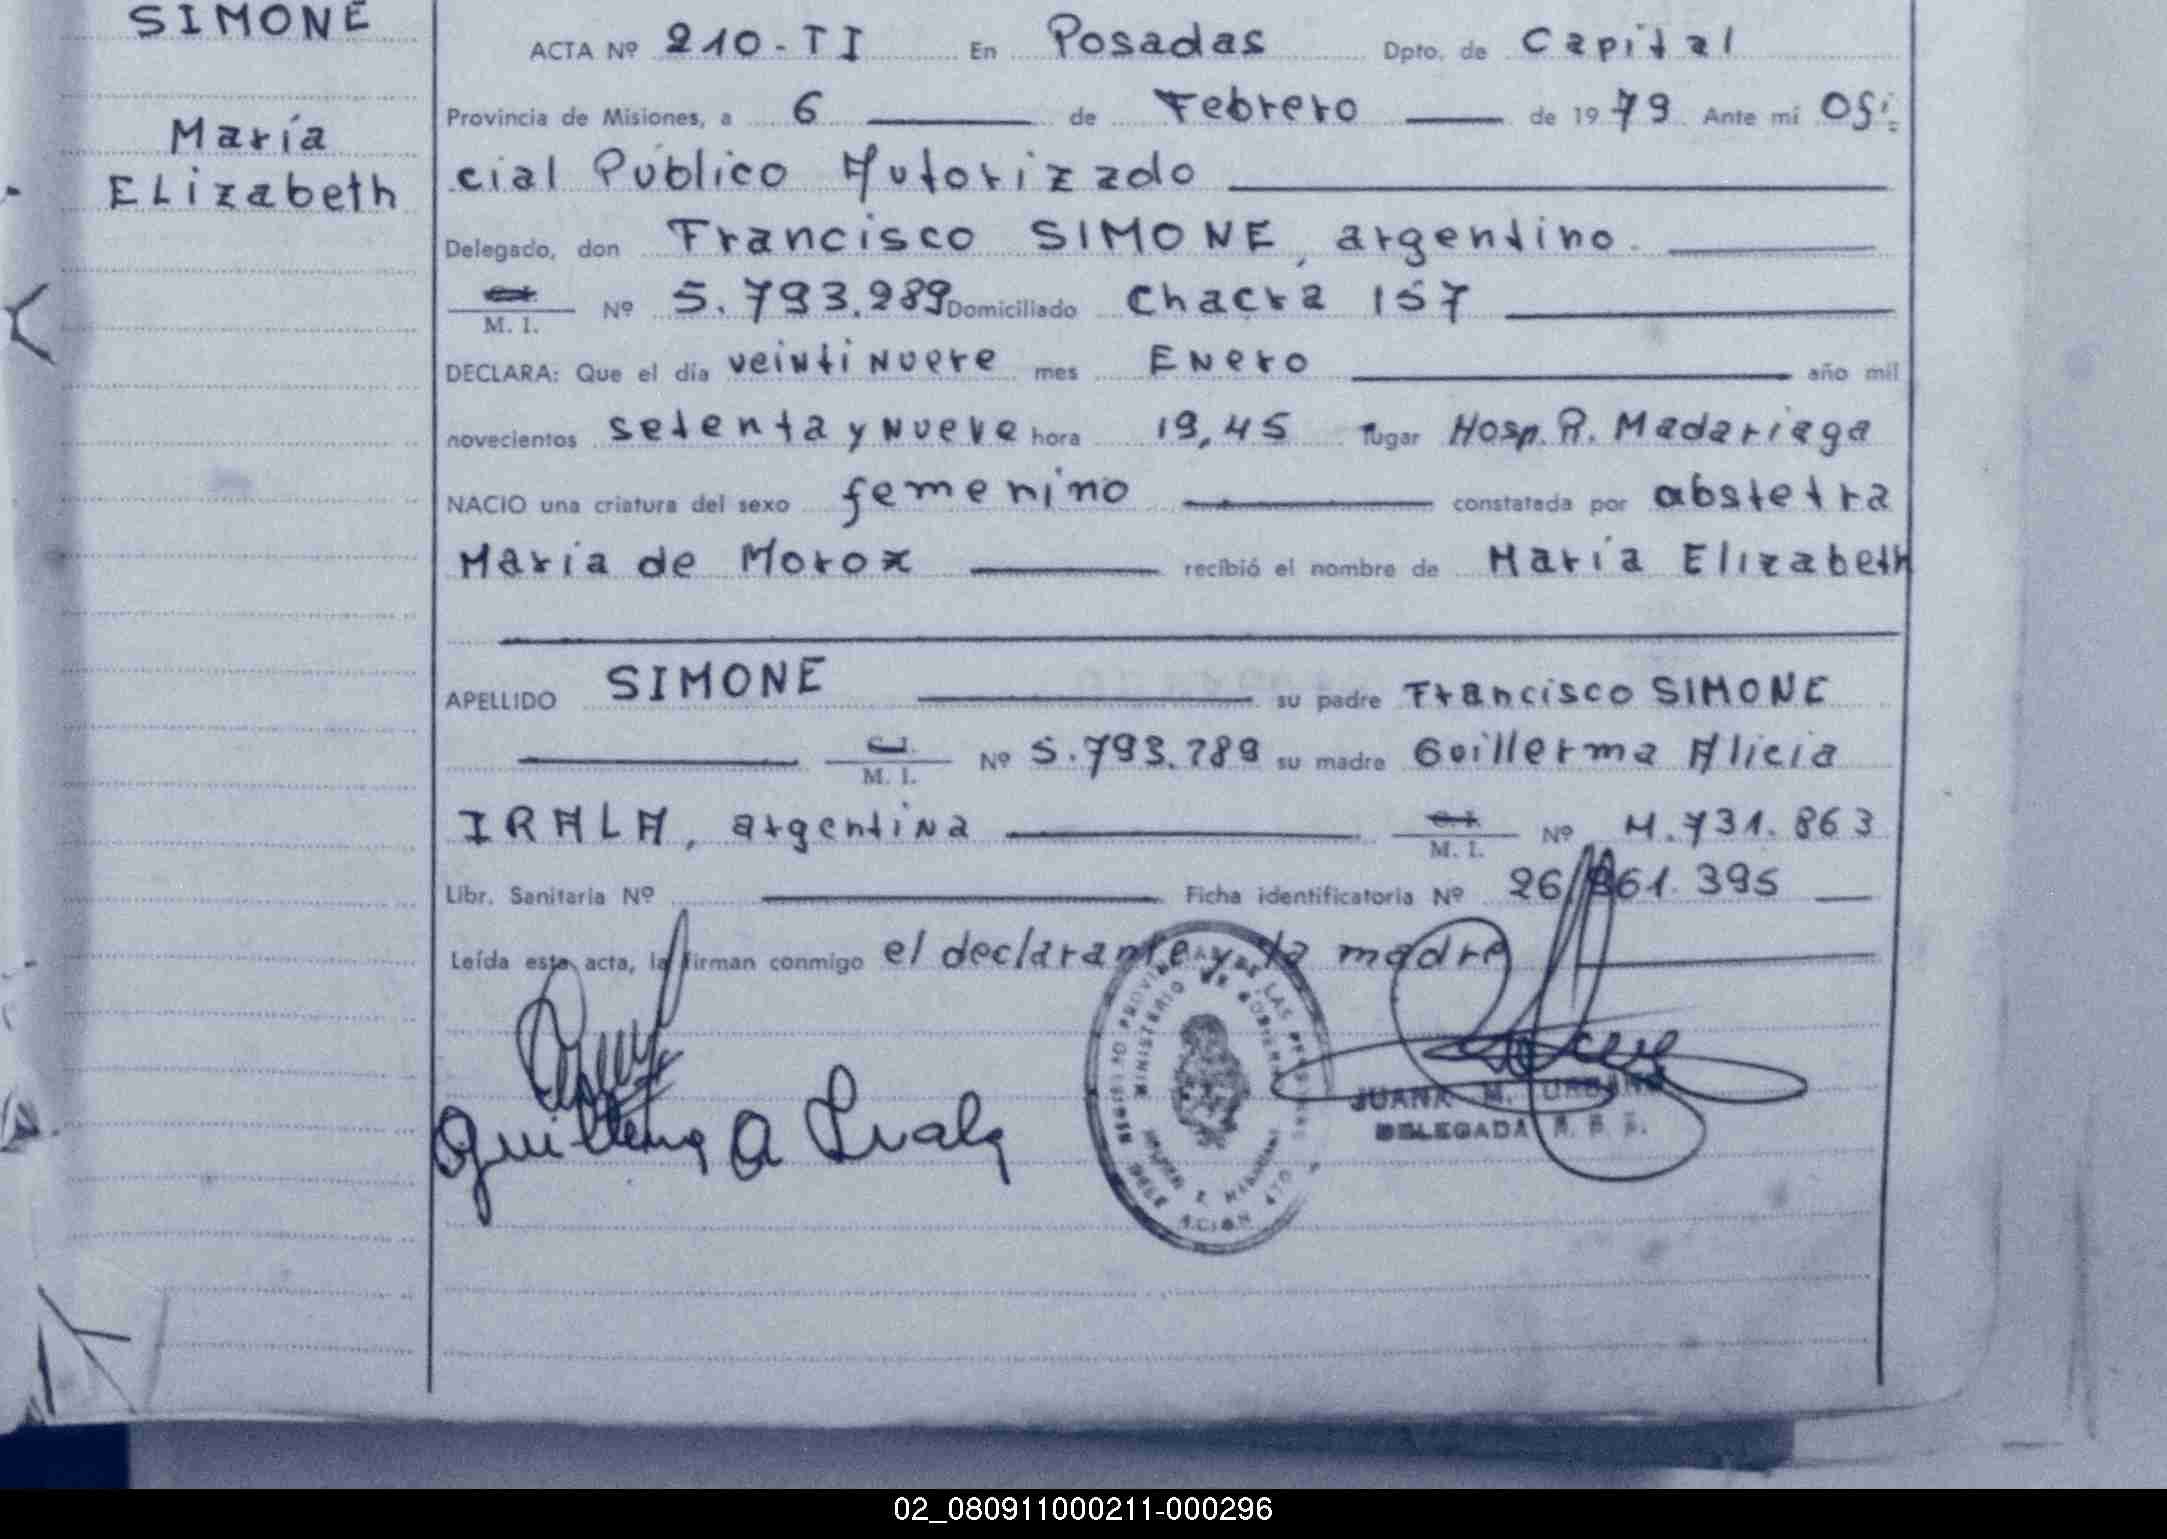 SIMONE
María
ELizabeth
ACTA Nº 210-TI En Posadas Dpto. de Capital
Provincia de Misiones, a 6 de Febrero de 1979 Ante mí Ofi-
cial Público Autorizado
Delegado, don Francisco SIMONE, argentino.
C.I.
M. I. Nº 5.793.289 Domiciliado Chacra 157
DECLARA: Que el día veintinueve mes Enero año mil
novecientos setenta y nueve hora 19,45 lugar Hosp. R. Madariaga
NACIO una criatura del sexo femenino constatada por obstetra
María de Morox recibió el nombre de María Elizabeth
APELLIDO SIMONE su padre Francisco SIMONE
C.I.
M. I. Nº 5.793.789 su madre Guillerma Alicia
IRALA, argentina
C.I.
M. I. Nº 4.731.863
Libr. Sanitaria Nº Ficha identificatoria Nº 26.861.395
Leída esta acta, la firman conmigo el declarante y la madre
Guillerma A Irala
JUANA M. URBANO
DELEGADA
02_080911000211-000296